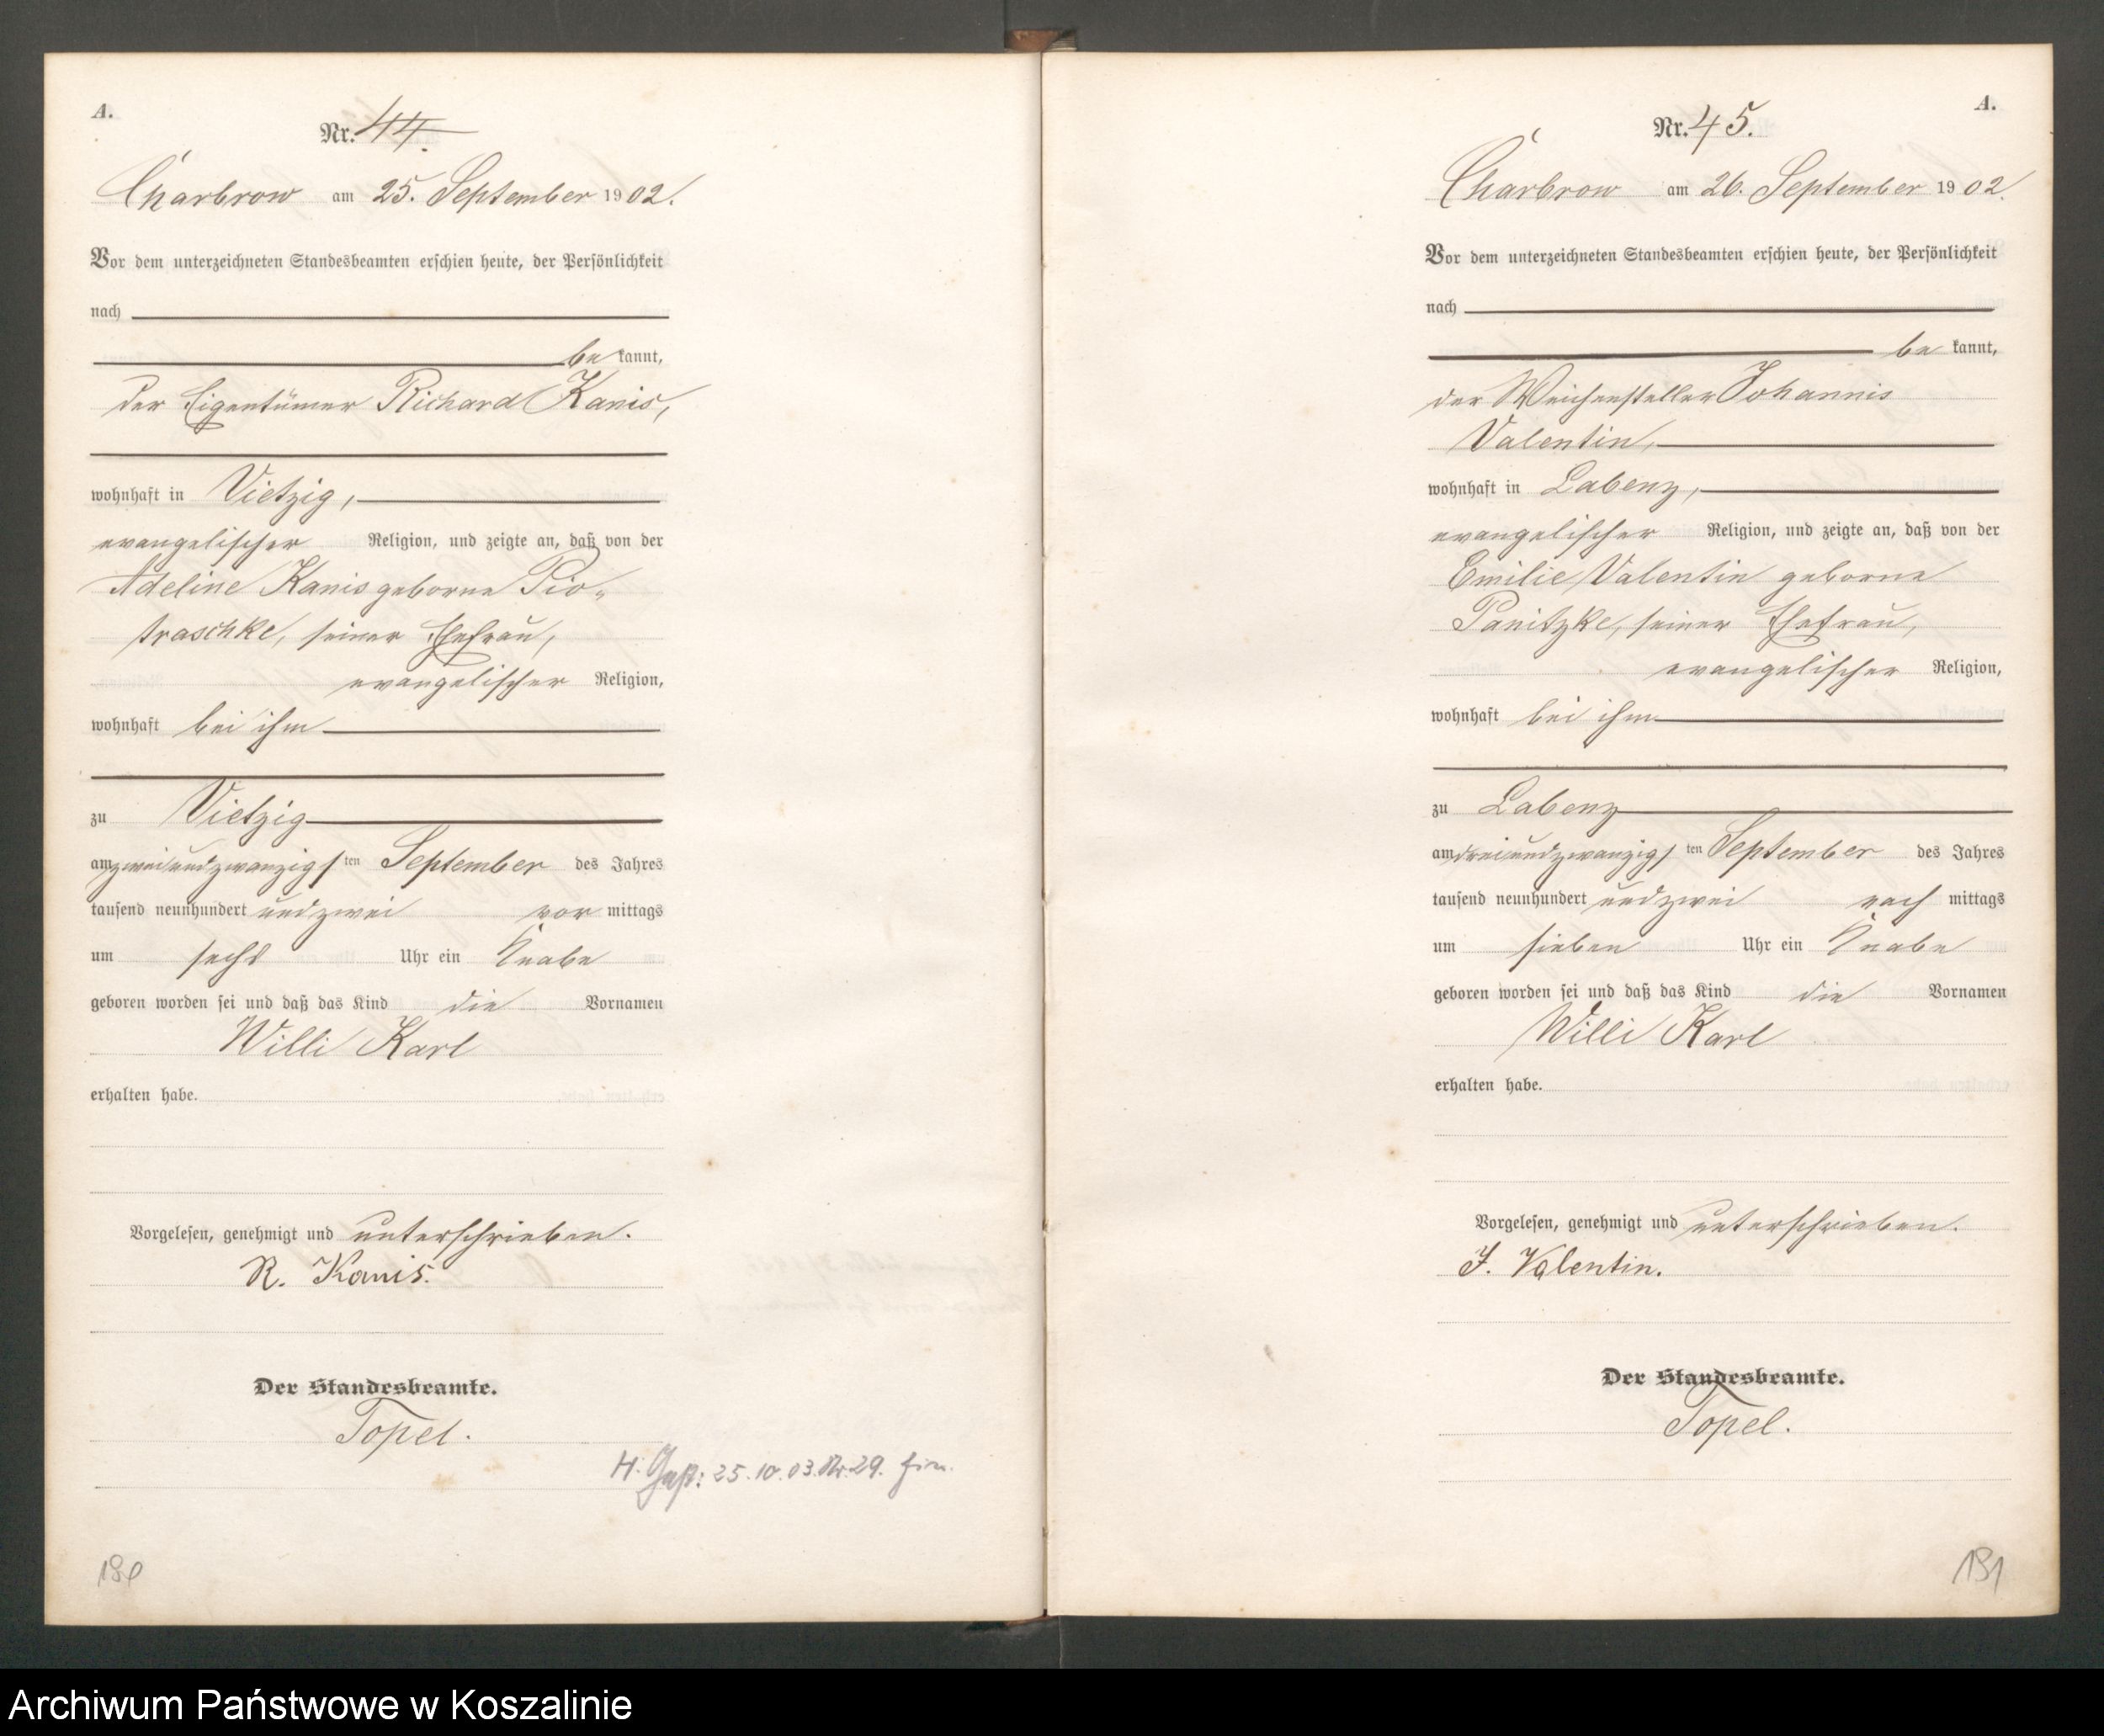 A.
Nr. 44.
Charbrow am 25. September 1902.
Vor dem unterzeichneten Standesbeamten erschien heute, der Persönlichkeit
nach
be kannt,
der Eigentümer Richard Kanis,
wohnhaft in Vietzig,
evangelischer Religion, und zeigte an, daß von der
Adeline Kanis geborne Pio-
traschke, seiner Ehefrau,
evangelischer Religion,
wohnhaft bei ihm
zu Vietzig
am zweiundzwanzigsten September des Jahres
tausend neunhundert und zwei vor mittags
um sechs Uhr ein Knabe
geboren worden sei und daß das Kind die Vornamen
Willi Karl
erhalten habe.
Vorgelesen, genehmigt und unterschrieben.
R. Kanis.
Der Standesbeamte.
Topel.
H. 25.10.03. Nr. 29.
190
A.
Nr. 45.
Charbrow am 26. September 1902.
Vor dem unterzeichneten Standesbeamten erschien heute, der Persönlichkeit
nach
be kannt,
der Weichensteller Johannis
Valentin,
wohnhaft in Labenz,
evangelischer Religion, und zeigte an, daß von der
Emilie Valentin geborne
Panitzke, seiner Ehefrau,
evangelischer Religion,
wohnhaft bei ihm
zu Labenz
am dreiundzwanzigsten September des Jahres
tausend neunhundert und zwei nach mittags
um sieben Uhr ein Knabe
geboren worden sei und daß das Kind die Vornamen
Willi Karl
erhalten habe.
Vorgelesen, genehmigt und unterschrieben.
J. Valentin.
Der Standesbeamte.
Topel.
191
Archiwum Państwowe w Koszalinie